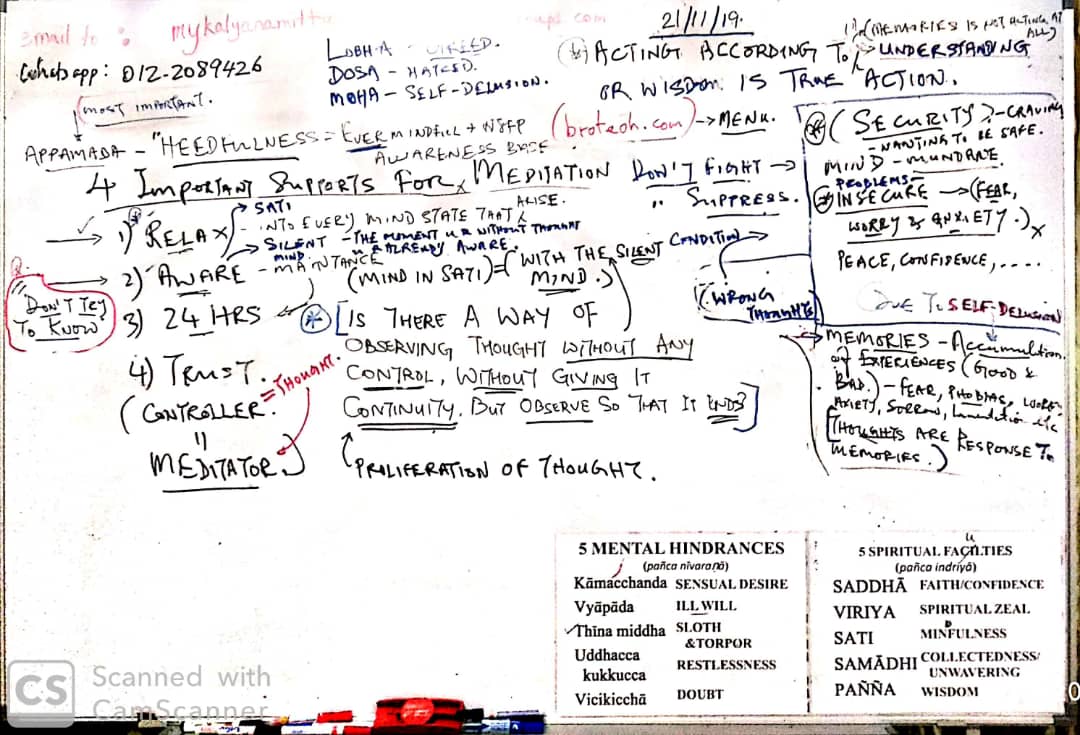 email to : mykalyanamitt
.com
21/11/19.
Whatsapp : 012-2089426
LOBHA - GREED.
DOSA - HATRED.
MOHA - SELF-DELUSION.
(MEMORIES IS NOT ACTING AT ALL)
ACTING ACCORDING TO UNDERSTANDING
OR WISDOM IS TRUE ACTION.
(MOST IMPORTANT.
APPAMADA - "HEEDFULNESS = EVER MINDFUL +
AWARENESS BASE
(broteoh.com) -> MENU.
4 IMPORTANT SUPPORTS FOR MEDITATION
DON'T FIGHT
" SUPPRESS.
1) RELAX
SATI
- INTO EVERY MIND STATE THAT ARISE.
SILENT MIND - THE MOMENT U R WITHOUT THOUGHT
U R ALREADY AWARE.
2) AWARE - MAINTANCE
(MIND IN SATI) = (WITH THE SILENT MIND.)
CONDITION
(WRONG THOUGHTS)
DON'T TRY
TO KNOW
3) 24 HRS
[IS THERE A WAY OF
OBSERVING THOUGHT WITHOUT ANY
CONTROL, WITHOUT GIVING IT
CONTINUITY. BUT OBSERVE SO THAT IT ENDS]
PROLIFERATION OF THOUGHT.
4) TRUST.
(CONTROLLER. = THOUGHT.
"
MEDITATOR.)
(SECURITY? - CRAVING
- WANTING TO BE SAFE.
MIND - MUNDANE.
PROBLEMS -
INSECURE -> (FEAR,
WORRY & ANXIETY.) x
PEACE, CONFIDENCE, ....
DUE TO SELF-DELUSION
MEMORIES - Accumultion
of EXPERIENCES (GOOD &
BAD.) - FEAR, PHOBIAS, WORRY
ANXIETY, SORROW, Lamentation etc
[THOUGHTS ARE RESPONSE TO
MEMORIES.)
5 MENTAL HINDRANCES
(pañca nīvaraṇā)
Kāmacchanda SENSUAL DESIRE
Vyāpāda ILL WILL
Thīna middha SLOTH
&TORPOR
Uddhacca
kukkucca RESTLESSNESS
Vicikicchā DOUBT
5 SPIRITUAL FACILTIES
(pañca indriyā)
SADDHĀ FAITH/CONFIDENCE
VIRIYA SPIRITUAL ZEAL
SATI MINFULNESS
SAMĀDHI COLLECTEDNESS/
UNWAVERING
PAÑÑA WISDOM
CS Scanned with
CamScanner